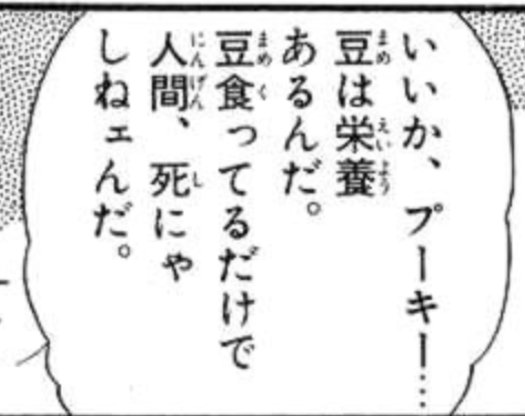 いいか、プーキー…
豆は栄養
あるんだ。
豆食ってるだけで
人間、死にゃ
しねェんだ。